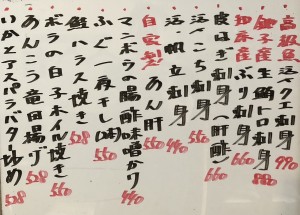 高級魚 活〆クエ刺身 990
銚子産 生鮪トロ刺身 880
知床産 ぶり刺身 660
皮はぎ刺身(肝酢) 660
活〆へこ刺身 440
活・帆立刺身 550
自家製! あん肝
マンボウの腸酢味噌かり 440
ふぐ一夜干し 550
鮭ハラス焼き 528
ボラの白子ホイル焼き 550
あんこう竜田揚げ 528
いかとアスパラバター炒め 528